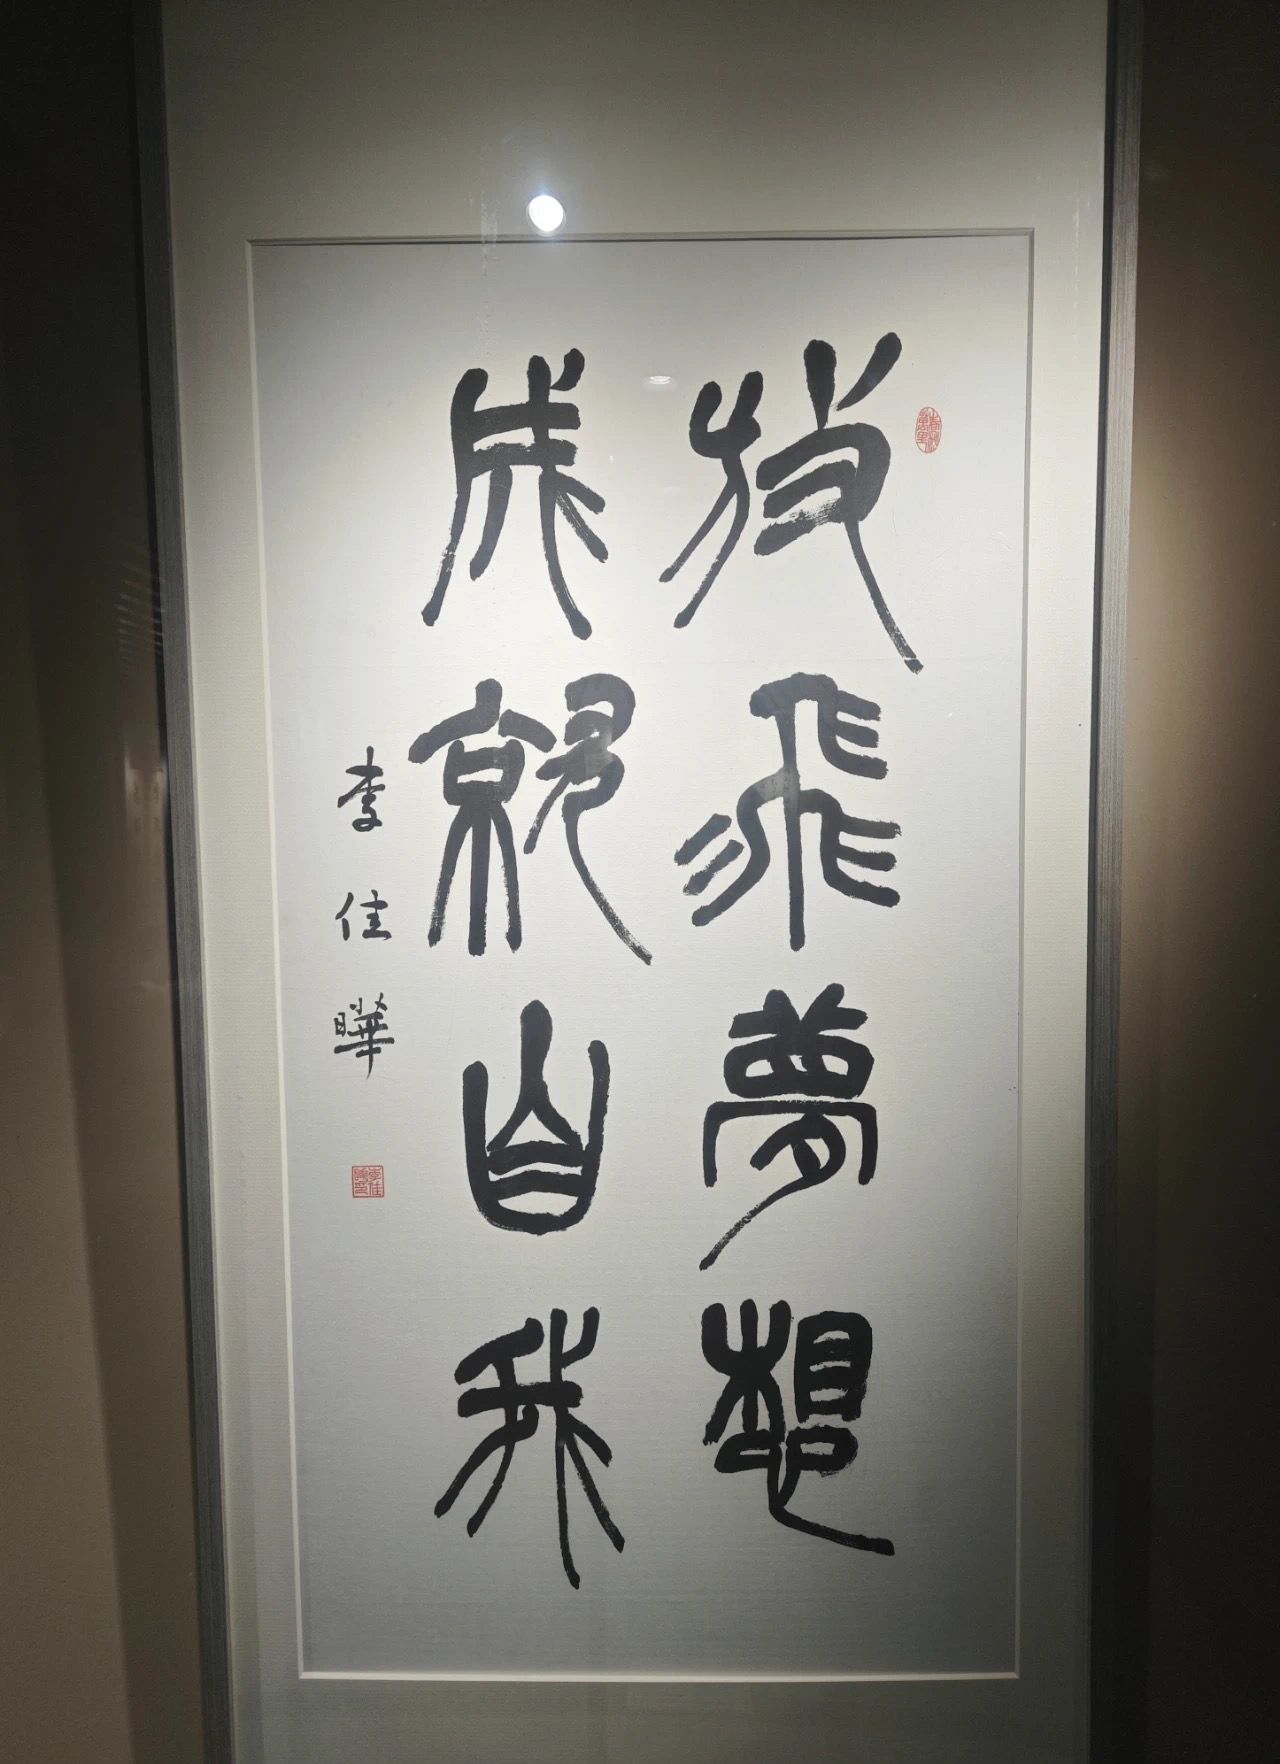 放飛夢想
成就自我
李佳曄